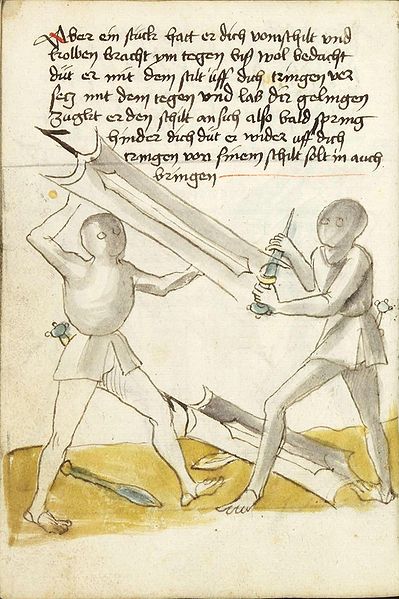 Aber ein stuckt hatt er dich vom schilt vnd
kolben bracht ym tegen biß wol bedacht
düt er mit dem stilt vff dich tringen ver
setz mit dem tegen vnd laß dir gelingen
zuckt er den schilt an sich also bald spring
hinder dich düt er wider uff dich
tringen von sinem schilt solt in auch
bringen